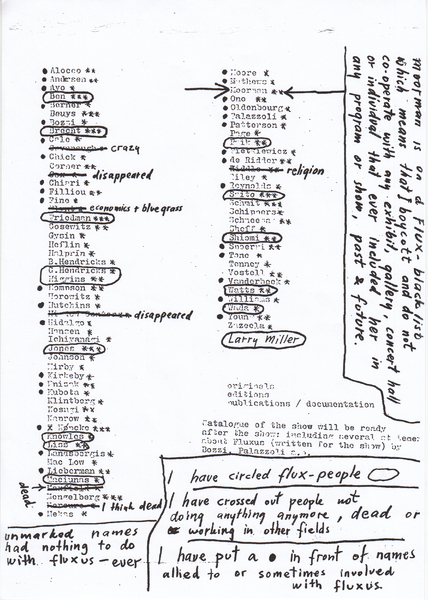 • Alocco **
• Andersen **
• Ayo *
Ben ***
Berner *
Beuys **
• Bozzi *
Brecht ***
Cale *
crazy
• Chick *
Corner **
disappeared
• Chiari *
• Filliou *
• Fine *
economics + bluegrass
Friedman ***
Gosewitz **
Gysin *
Heflin *
Halprin *
B.Hendricks *
G.Hendricks
Higgins **
• Homason **
Horowitz *
• Hutchins *
disappeared
• Hidalgo
Hansen *
Ichiyanagi *
Jones ***
Johnson *
Kirby *
• Kirkeby *
• Knizak **
• Kubota *
Klintberg *
Kosugi **
Kaprow *
• X Køpcke ***
Knowles **
Liss **
• Landsbergis *
Mac Low *
• Lieberman **
Maciunas *
dead
• Mengelberg **
I think dead
• Mekas *
unmarked names
had nothing to do
with fluxus – ever
• Moore *
• Mathews *
Moorman *
• Ono **
• Oldenbourg *
• Palazzoli *
• Patterson *
Page *
Paik **
de Ridder **
religion
Riley *
• Reynolds *
Saito ***
Schmit ***
Schippers *
Shiomi **
• Tone *
Tenney *
Vostell *
• Vanderbeek *
Watts **
• Williams *
Wada *
• Young *
Zazeela *
Larry Miller
moorman is on a flux-blacklist
which means that I boycott and do not
co-operate with any exhibit, gallery, concert hall
or individual that ever included her in
any program or show, past & future.
originals
editions
publications / documentation
Catalogue of the show will be ready
after the show: including several
about Fluxus (written for the show) by
Bozzi, Palazzoli
I have circled flux-people
I have crossed out people not
doing anything anymore, dead or
working in other fields
I have put a • in front of names
allied to or sometimes involved
with fluxus.